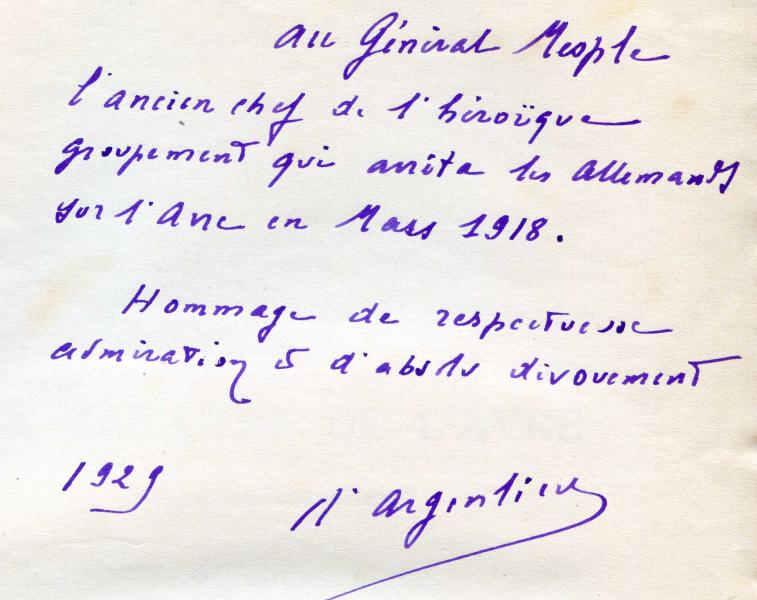 Au Général Mesple
l'ancien chef de l'héroïque
groupement qui arrêta les Allemands
sur l'Avre en Mars 1918.
Hommage de respectueuse
admiration et d'absolu dévouement
1929
d'Argenlieu